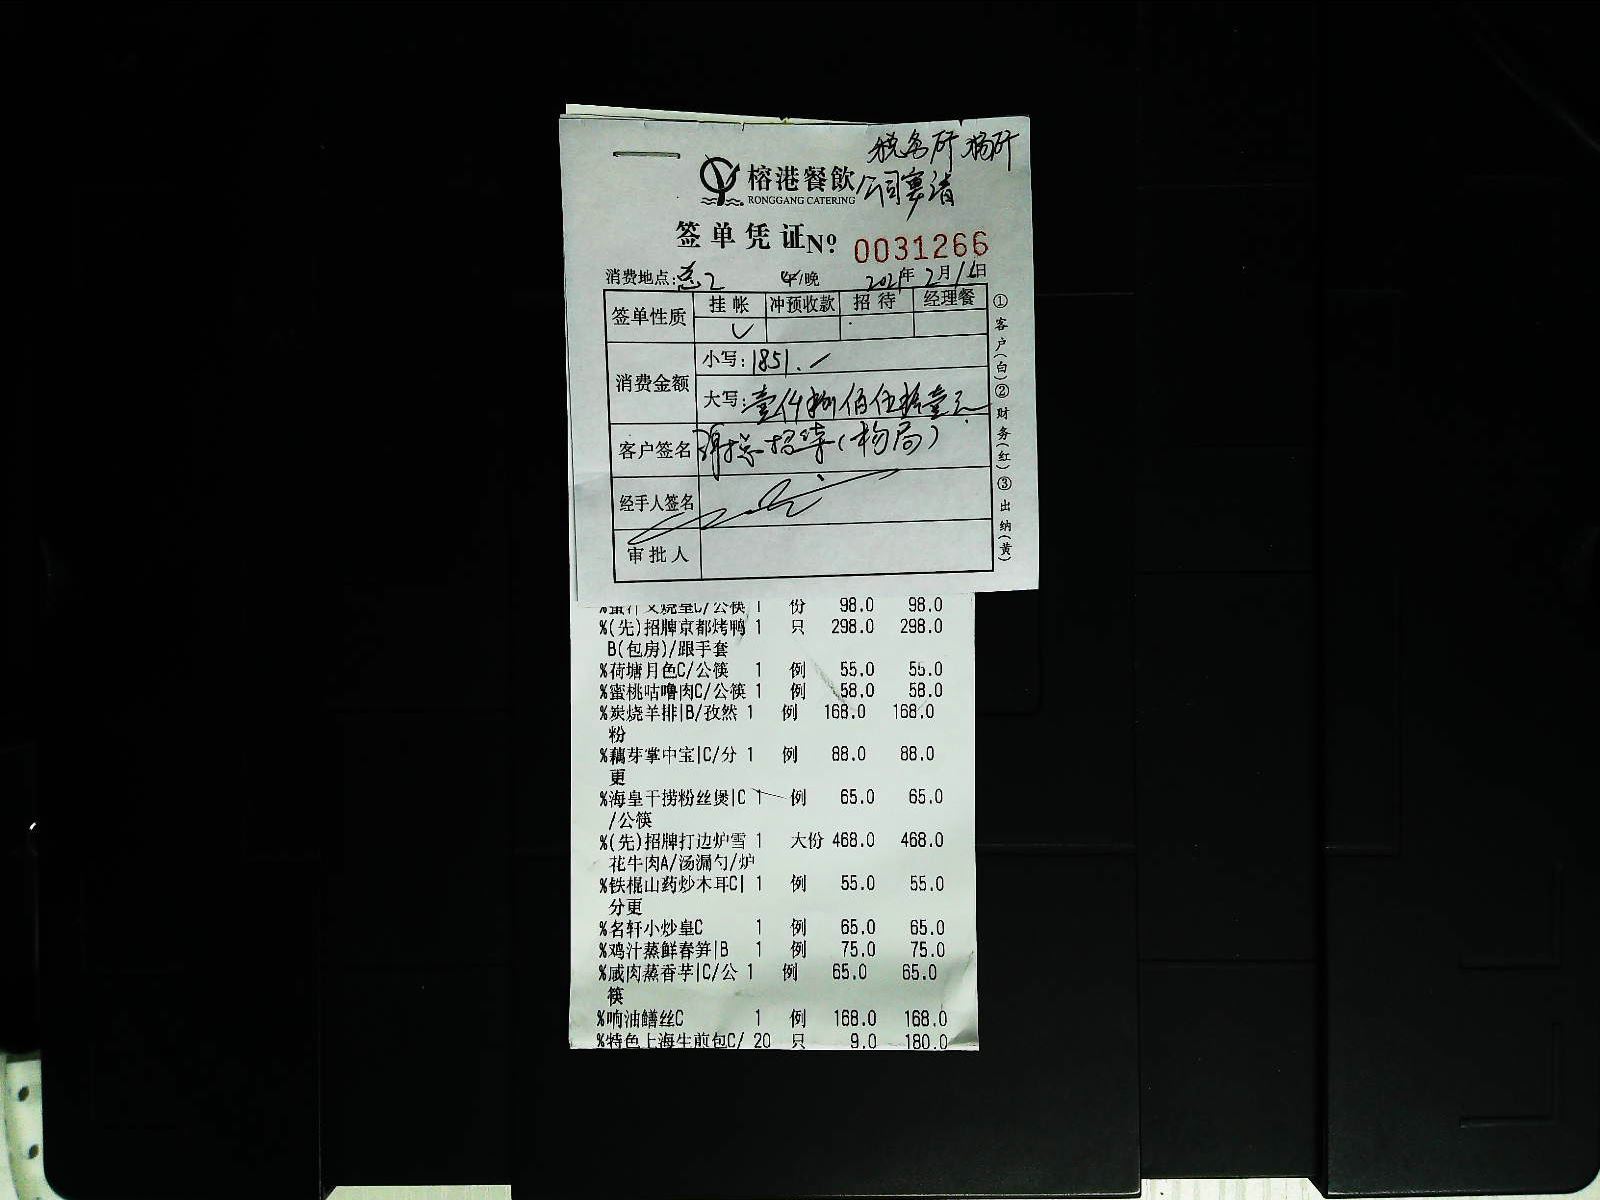 税务所 杨所
公司宴请
榕港餐飲
RONGGANG CATERING
签单凭证 № 0031266
消费地点: 总2 中/晚 2021年2月1日
签单性质 挂帐 冲预收款 招待 经理餐
✓
消费金额 小写: 1851.
大写: 壹仟捌佰伍拾壹元
客户签名 招待(杨局)
经手人签名
审批人
①客户(白)②财务(红)③出纳(黄)
%蜜汁叉烧皇C/公筷 1 份 98.0 98.0
%(先)招牌京都烤鸭 1 只 298.0 298.0
B(包房)/跟手套
%荷塘月色C/公筷 1 例 55.0 55.0
%蜜桃咕噜肉C/公筷 1 例 58.0 58.0
%炭烧羊排|B/孜然 1 例 168.0 168.0
粉
%藕芽掌中宝|C/分 1 例 88.0 88.0
更
%海皇干捞粉丝煲|C 1 例 65.0 65.0
/公筷
%(先)招牌打边炉雪 1 大份 468.0 468.0
花牛肉A/汤漏勺/炉
%铁棍山药炒木耳C| 1 例 55.0 55.0
分更
%名轩小炒皇C 1 例 65.0 65.0
%鸡汁蒸鲜春笋|B 1 例 75.0 75.0
%咸肉蒸香芋|C/公 1 例 65.0 65.0
筷
%响油鳝丝C 1 例 168.0 168.0
%特色上海生煎包C/ 20 只 9.0 180.0